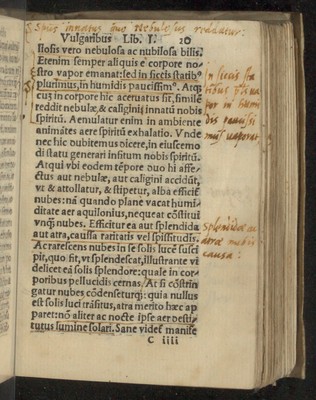 Spūs innatus quo nebulosus reddatur.
Vulgaribus Lib. I. 20
ilosis vero nebulosa ac nubilosa bilis.
Etenim semper aliquis è corpore no-
stro vapor emanat: sed in siccis statibꝰ
plurimus, in humidis paucissimꝰ. Atqꝫ
cuz in corpore hic aceruatus sit, similē
reddit nebulæ, & caliginị innatū nobis
spiritū. Aemulatur enim in ambiente
animātes aere spiritū exhalatio. Vnde
nec hic dubitemus dicere, in eiuscemo
di statu generari insitum nobis spiritū.
Atqui vbi eodem tēpore duo hi affe-
ctus aut nebulæ, aut caligini accidūt,
vt & attollatur, & stipetur, alba efficit
nubes: nā quando plane vacat humi-
ditate aer aquilonius, nequeat cōstitui
vnqꝫ nubes. Efficitur ea aut splendida
aut atra, caussa raritatis vel spissitudīs.
Ac rarescens nubes in se solis lucē susci
pit, quo fit, vt splendescat, illustrante vi
delicet eā solis splendore: quale in cor-
poribus pellucidis cernas. At si cōstrin
gatur nubes cōdenseturqꝫ: quia nullus
est solis luci trāsitus, atra merito hæc ap
paret: nō aliter ac nocte ipse aer desti-
tutus lumine solari. Sane videt manife
C iiii
in siccis sta
tibus
in humi
dis paucissi
mus vaporat
splendida ac
atra nubis
causa: